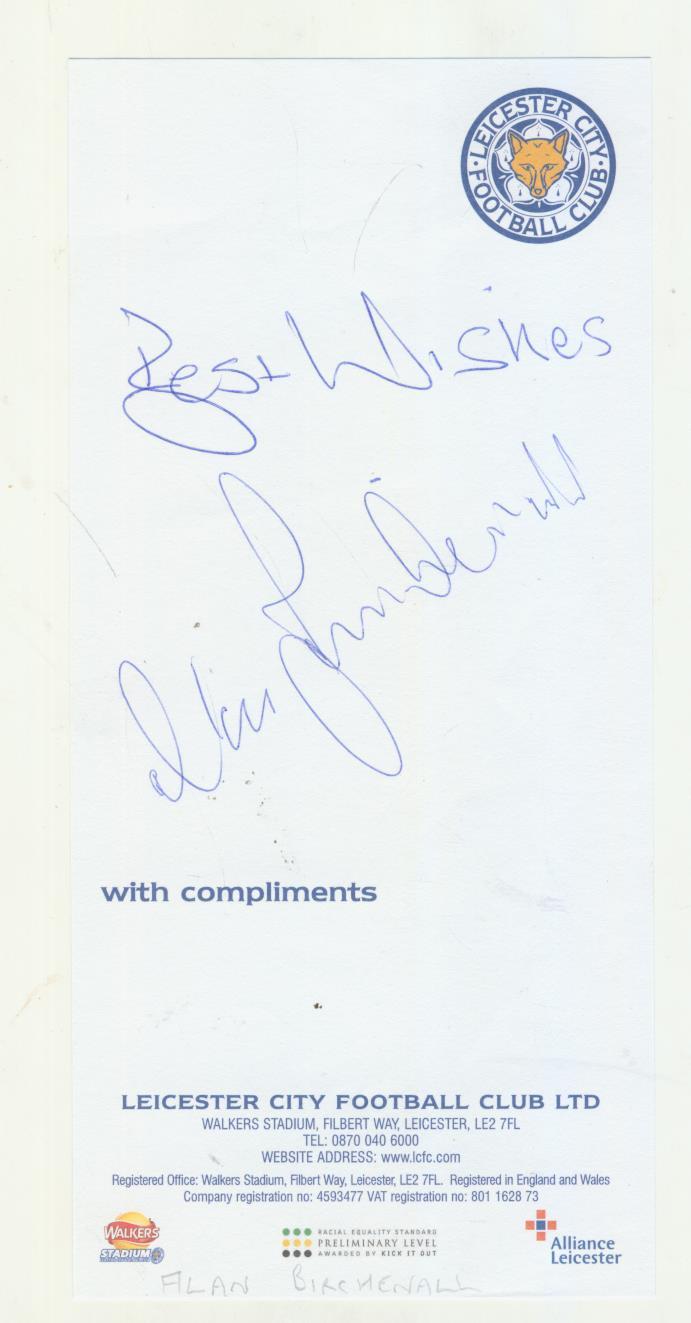 LEICESTER CITY
FOOTBALL CLUB
Best Wishes
Alan Birchenall
with compliments
LEICESTER CITY FOOTBALL CLUB LTD
WALKERS STADIUM, FILBERT WAY, LEICESTER, LE2 7FL
TEL: 0870 040 6000
WEBSITE ADDRESS: www.lcfc.com
Registered Office: Walkers Stadium, Filbert Way, Leicester, LE2 7FL. Registered in England and Wales
Company registration no: 4593477 VAT registration no: 801 1628 73
WALKERS
STADIUM
RACIAL EQUALITY STANDARD
PRELIMINARY LEVEL
AWARDED BY KICK IT OUT
Alliance
Leicester
ALAN BIRCHENALL